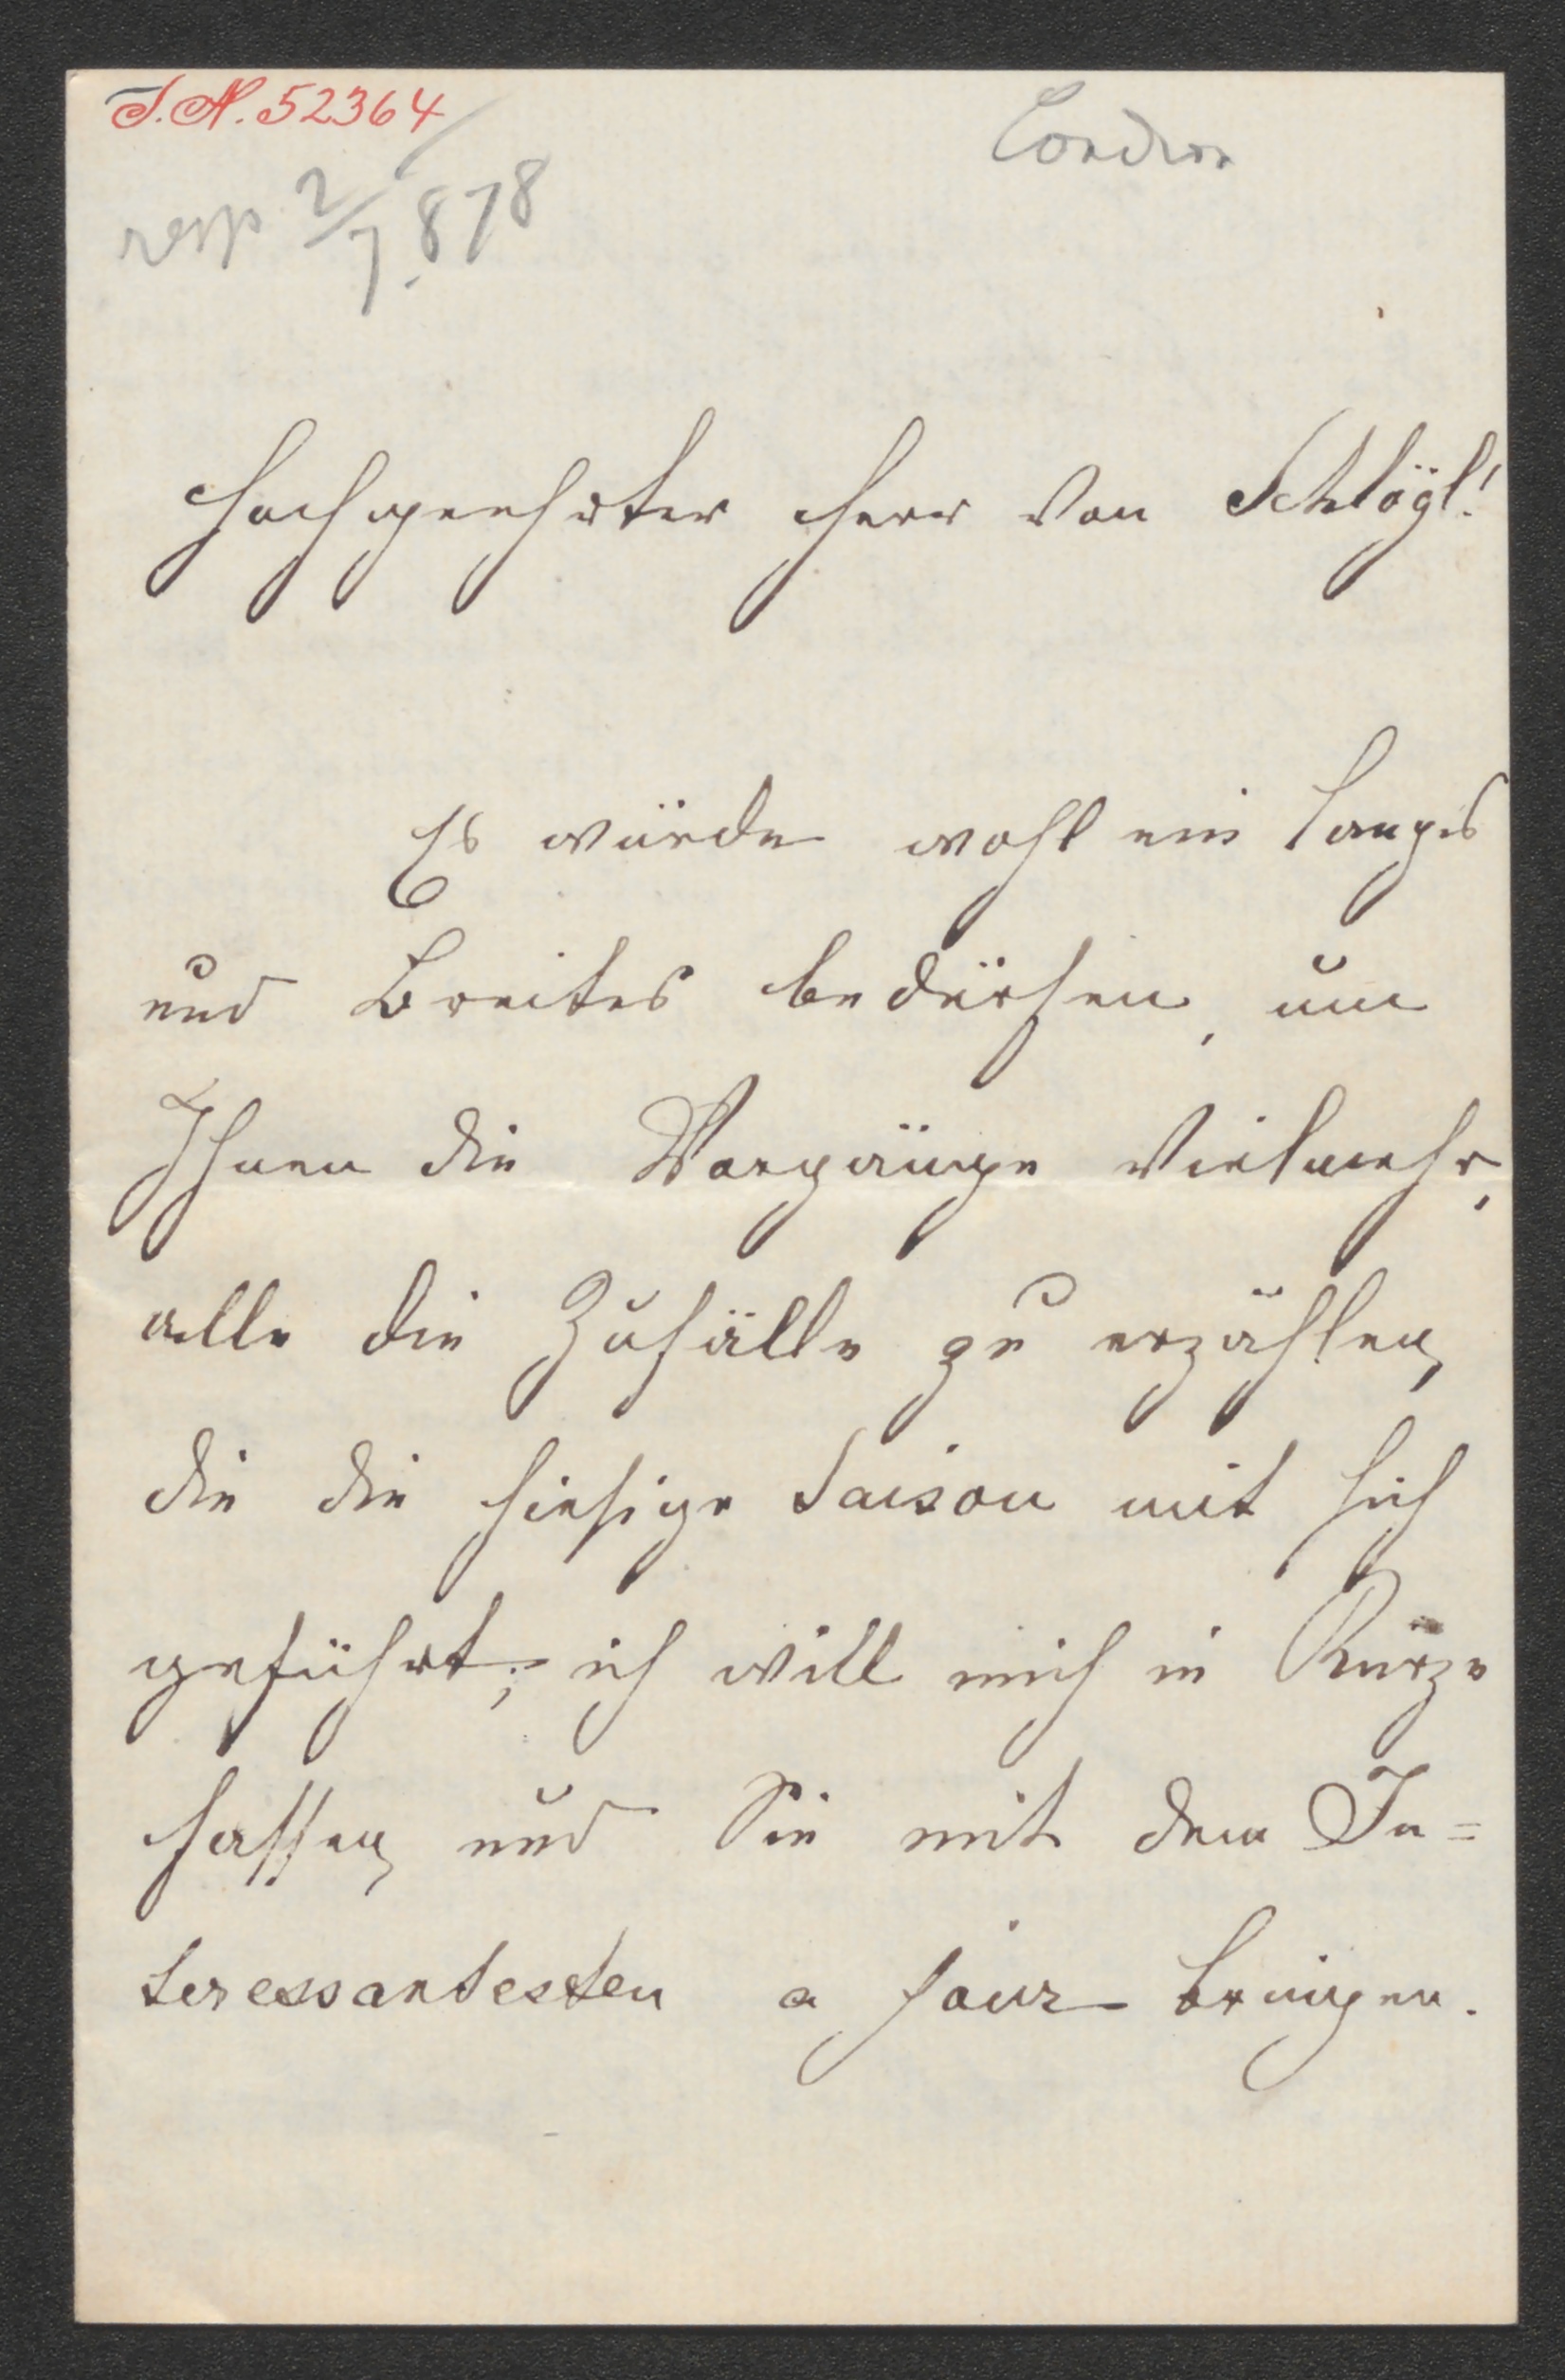 I.N. 52364
London
resp 2/7 878
Hochgeehrter Herr von Schlögl!
Es würde wohl ein langes
und Breites bedürfen, um
Ihnen die Vorgänge vielmehr,
alle die Zufälle zu erzählen,
die die hiesige Saison mit sich
geführt; ich will mich in Kürze
fassen und Sie mit dem In=
teressantesten a jour bringen.